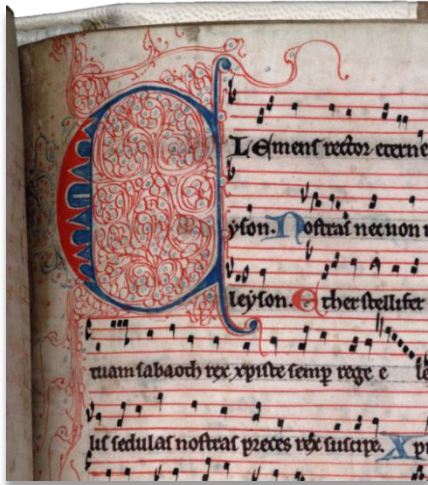 CLemens rector eterne
yson. Nostras necnon
leyson. Ether stellifer
tuam sabaoth rex xpiste semp rege e
lis sedulas nostras preces rex suscipe. Xp